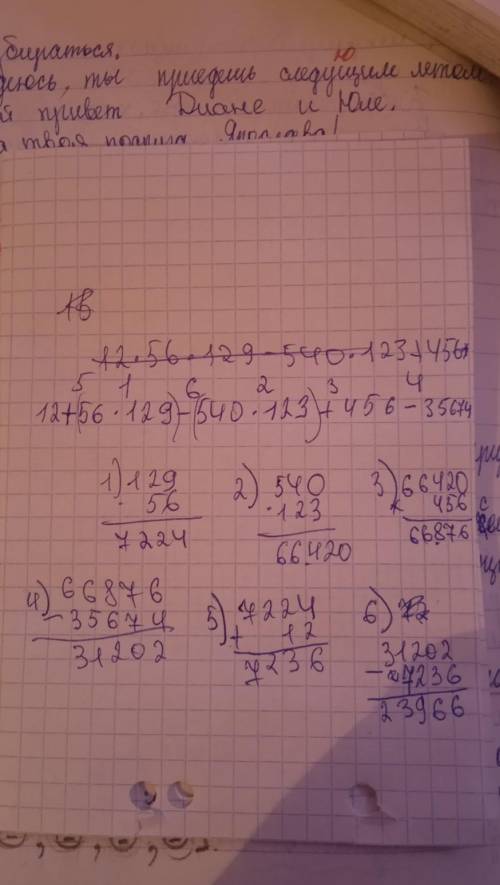 бираться.
деюсь, ты приедешь следущим летом
ю
й привет Диане и Юле.
а твоя
1В
12·56·129-540·123+456
5 1 6 2 3 4
12+(56·129)-(540·123)+456-35674
1) 129
·56
7224
2) 540
·123
66420
3) 66420
+ 456
66876
4) 66876
-35674
31202
5) 7224
+ 12
7236
6) 72
31202
-7236
23966